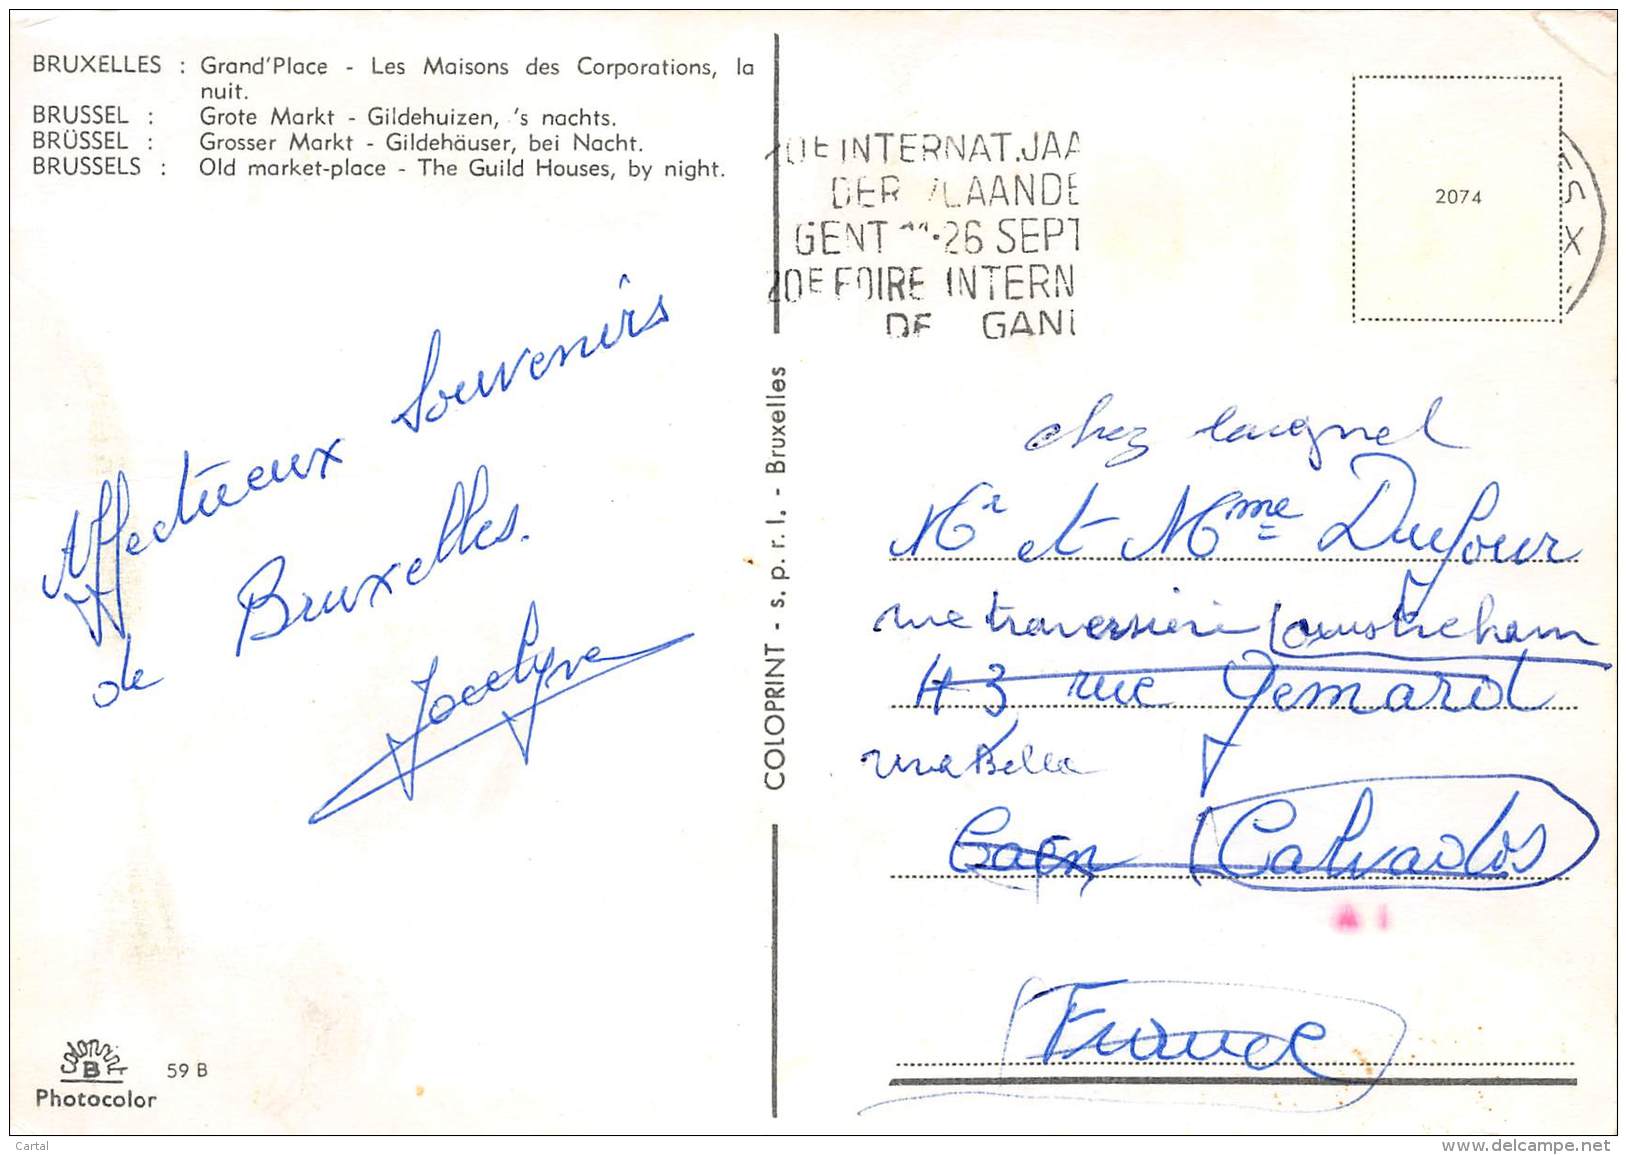 BRUXELLES : Grand'Place - Les Maisons des Corporations, la
nuit.
BRUSSEL : Grote Markt - Gildehuizen, 's nachts.
BRÜSSEL : Grosser Markt - Gildehäuser, bei Nacht.
BRUSSELS : Old market-place - The Guild Houses, by night.
Affectueux Souvenirs
de Bruxelles.
Jocelyne
COLOPRINT - s. p. r. l. - Bruxelles
INTERNAT. JAA
DER VLAANDE
GENT 11-26 SEPT
20E FOIRE INTERN
DE GAN
2074
chez
Mr et Mme Dufour
rue traversière ouistreham
43 rue Gemard
Caen Calvados
France
59 B
Photocolor
Cartal
www.delcampe.net